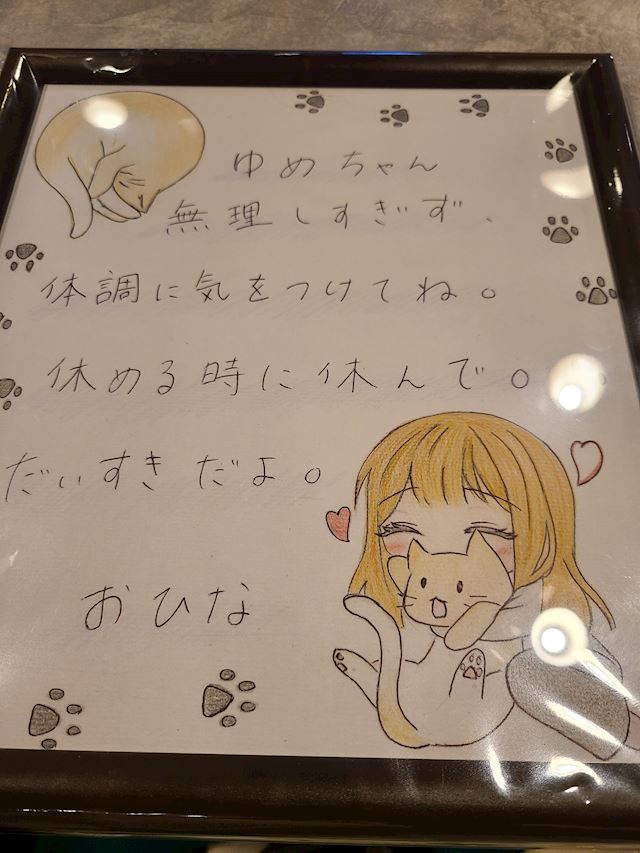 ゆめちゃん
無理しすぎず、
体調に気をつけてね。
休める時に休んで。
だいすきだよ。
おひな